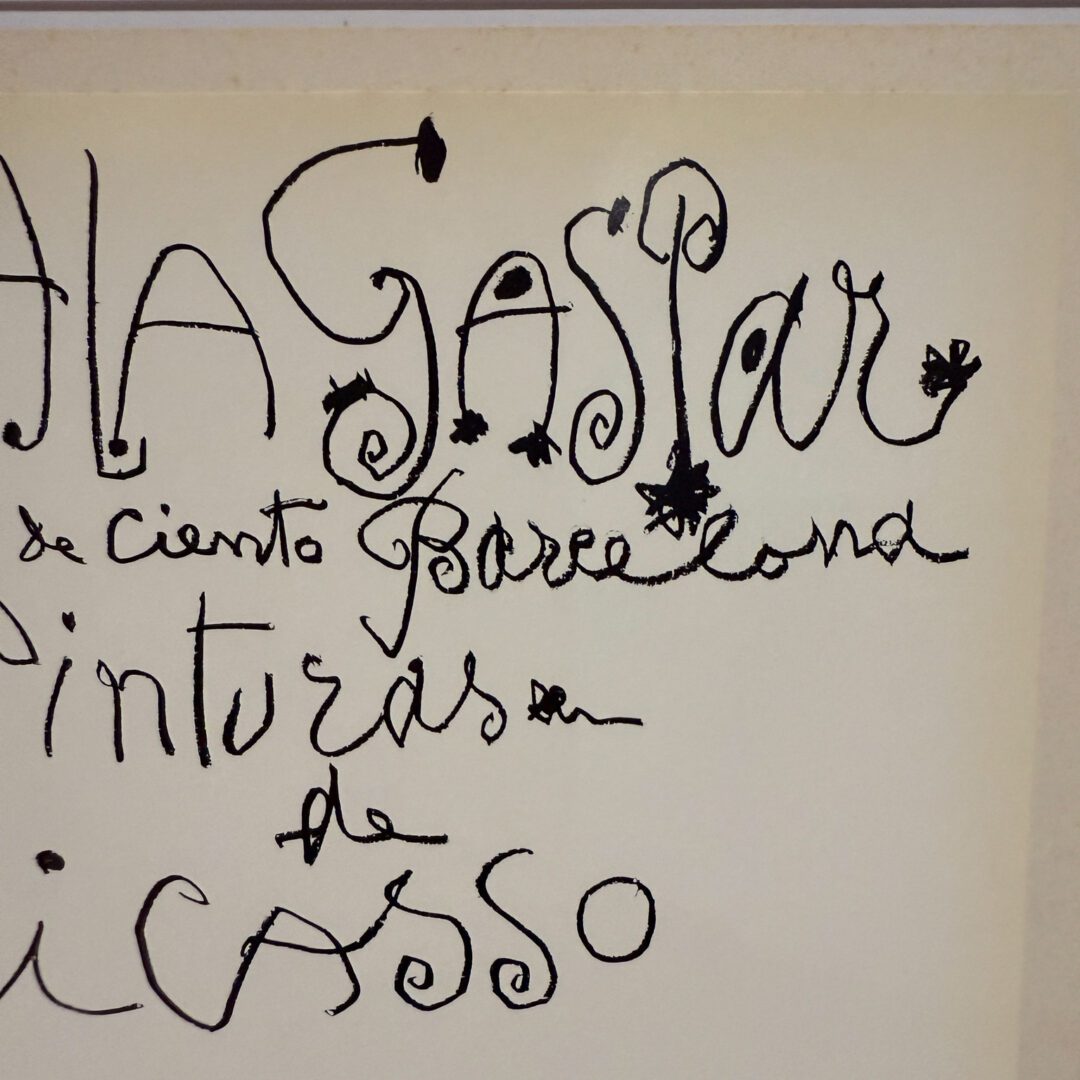 ALA GASPar
de ciento Barcelona
Pinturas
de
icasso